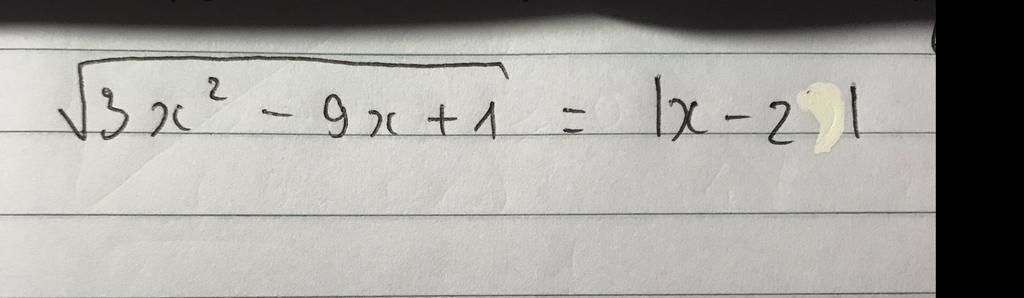 √(3x² - 9x + 1) = |x - 2|